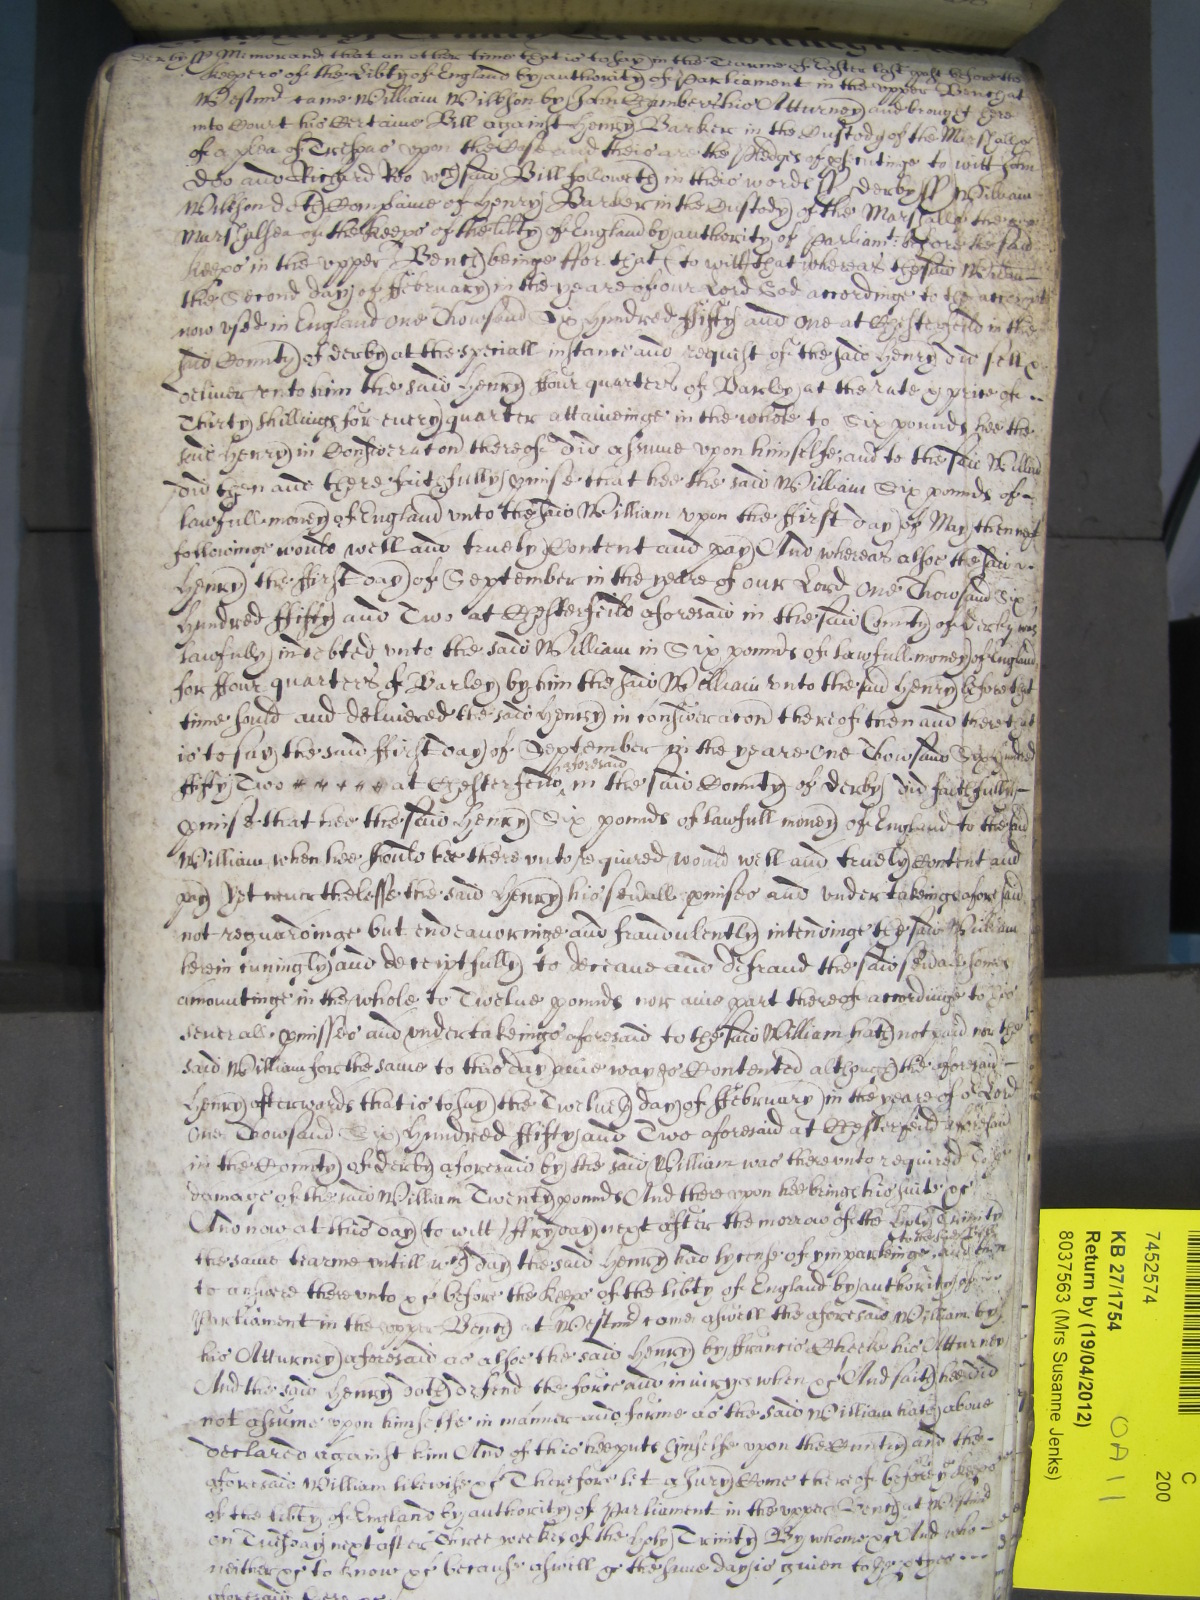 derby ss Memorand that an other time that is to say in the Tearme of Easter last past before the
keepers of the Libty of England by authority of Parliament in the upper Bench at
Westmr came William Willson by John Chambers his Atturney and brought here
into Court his Certaine Bill against Henry Barker in the Custody of the Marshall &c
of a plea of Trespas upon the Case and there are the pledges of psecutinge to witt John
Doo and Richard Roo wch said Bill followeth in theis words ss derby ss William
Willson doth Complaine of Henry Barker in the Custody of the Marshall of the
Marshalsea of the keeps of the libty of England by authority of Parliamt before the said
keeps in the upper Bench beinge ffor that (to witt) that whereas the said William
the Second day of ffebruary in the yeare of our Lord God accordinge to the accompt
now used in England One Thowsand Six Hundred ffifty and One at Chesterfeild in the
said County of derby at the speciall instance and request of the said Henry did sell &
deliver unto him the said Henry ffour quarters of Barley at the rate & price of
Thirty shillings for every quarter attaineinge in the whole to Six pounds hee the
said Henry in Consideracon thereof did assume upon himselfe and to the said William
did then and there faithfully pmise that hee the said William Six pounds of
lawfull money of England unto the said William upon the ffirst day of May then next
followinge would well and truely Content and pay And whereas alsoe the said
Henry the ffirst day of September in the yeare of our Lord One Thowsand Six
Hundred ffifty and Two at Chesterfeild aforesaid in the said County of derby was
lawfully indebted unto the said William in Six pounds of lawfull money of England
for ffour quarters of Barley by him the said William unto the said Henry before that
time sould and delivered the said Henry in consideracon thereof then and there that
is to say the said ffirst day of September in the yeare One Thowsand Six Hundred
ffifty Two at Chesterfeild aforesaid in the said County of derby did faithfully
pmise that hee the said Henry Six pounds of lawfull money of England to the said
William when hee should bee there unto required would well and truely Content and
pay Yet neverthelesse the said Henry his sevall pmises and undertakeings aforesaid
not reguardinge but endeavoringe and fraudulently intendinge the said William
herein cuningly and deceiptfully to deceave and defraud the said sevall somes
amountinge in the whole to Twelve pounds nor anie part thereof accordinge to his
severall pmisses and undertakeings aforesaid to the said William hath not paid nor the
said William for the same to this day anie wayes Contented although the aforesaid
Henry afterwards that is to say the Twelveth day of ffebruary in the yeare of or Lord
One Thowsand Six Hundred ffifty and Two aforesaid at Chesterfeild aforesaid
in the County of derby aforesaid by the said William was there unto required To the
damage of the said William Twenty pounds And thereupon hee brings his suite &c
And now at this day (to witt) ffryday next after the morrow of the holy Trinity
the same tearme untill wch day the said Henry had lycense of ymparleinge to the said Bill and then
to answere there unto &c before the keeps of the libty of England by authority of
Parliament in the upper Bench at Westmr come aswell the aforesaid William by
his Atturney aforesaid as alsoe the said Henry by ffrancis Cheeke his Atturney
And the said Henry doth defend the force and iniury when &c And saith hee did
not assume upon himselfe in manner and forme as the said William hath above
declared against him And of this hee puts himselfe upon the Cuntry and the
aforesaid William likewise &c Therefore let a Jury Come thereof before ye keeps
of the libty of England by authority of Parliament in the upper Bench at Westmr
on Tuesday next after three weekes of the holy Trinity By whome &c And who
neither &c to know &c because aswell &c the same day is given to ye ptyes
aforesaid there &c
C
200
7452574
KB 27/1754
Return by (19/04/2012)
8037563 (Mrs Susanne Jenks)
OA 11